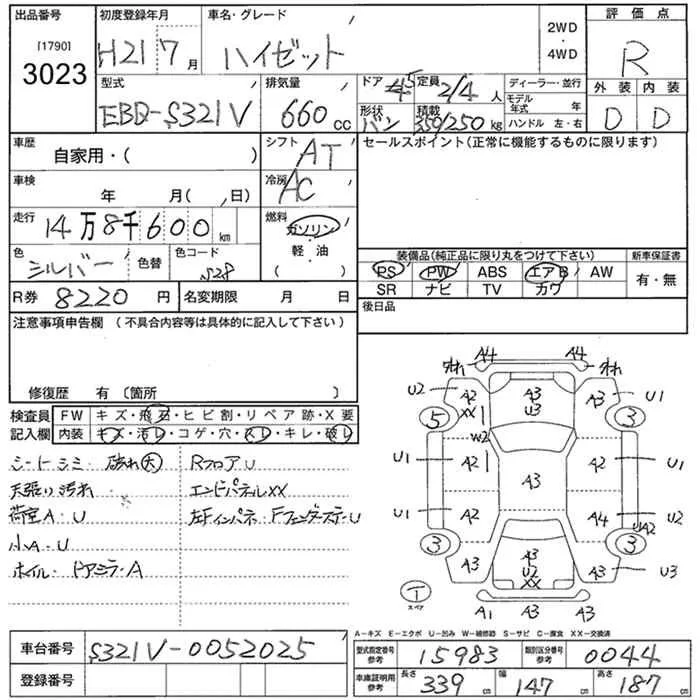 出品番号 初度登録年月 車名・グレード 2WD・4WD 評価点
[1790]
3023 H21 7月 ハイゼット R
型式 排気量 ドア 定員 ディーラー・並行 外装 内装
EBD-S321V 660cc 45 2/4人 モデル年式 年 D D
形状 積載
バン 350/250kg ハンドル 左・右
車歴 自家用・( ) シフト AT セールスポイント(正常に機能するものに限ります)
車検 年 月( 、日) 冷房 AC
走行 14万8千600km 燃料 ガソリン・軽・油( )
色 シルバー 色替 色コード S28
装備品(純正品に限り丸をつけて下さい) 新車保証書
PS PW ABS エアB AW 有・無
SR ナビ TV カワ
R券 8220円 名変期限 月 日 後日品
注意事項申告欄 (不具合内容等は具体的に記入して下さい)
修復歴 有〔箇所 〕
検査員記入欄 FW キズ・飛石・ヒビ割・リペア跡・X要
内装 キズ・汚レ・コゲ・穴・スレ・キレ・破レ
シートシミ・破れ大 RフロアU
天張り汚れ エンドパネルXX
荷室A・U 左Fインパネ・FフェンダーステーU
小A・U
ホイル・ドアミラ・A
A4 A4
ワれ ワれ
U2 A2 A3 A3 U1
XX U3
5 3
W2
U1 A2 A3 A2 U1
U1 A2 A4 UA2
3 3
A3 A3 A3 U3
U2
XX
1 スペア A1 A3 A3
A-キズ E-エクボ U-凹み W-補修跡 S-サビ C-腐食 XX-交換済
車台番号 S321V-0052025
型式指定番号 参考 15983 類別区分番号 参考 0044
登録番号
車庫証明用 参考 長さ 339cm 幅 147cm 高さ 187cm